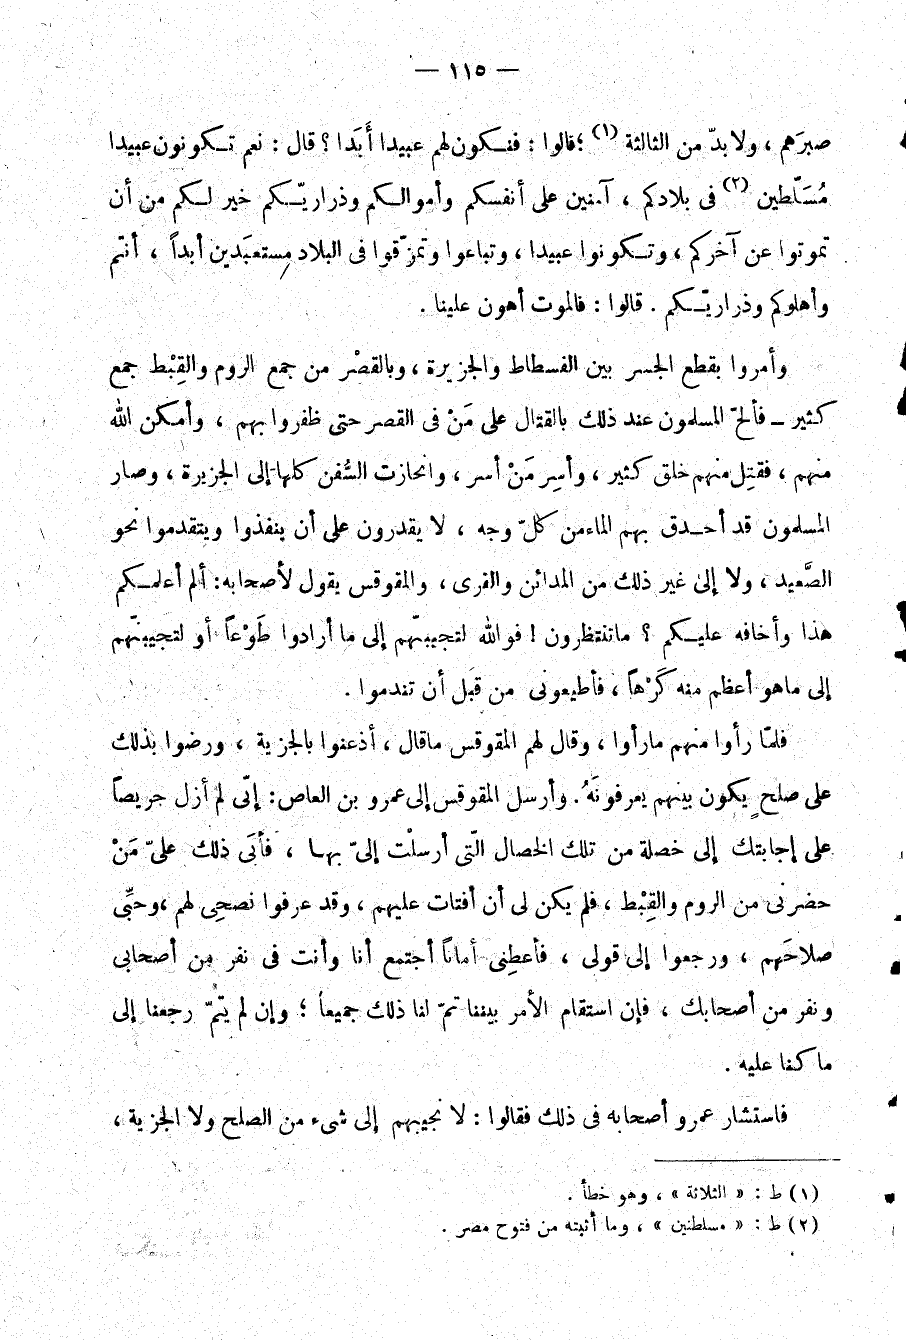 — ١١٥ —
صبرَهم ، ولا بدّ من الثالثة (١) ؛ قالوا : فنكون لهم عبيدا أَبَدا ؟ قال : نعم تكونون عبيدا
مُسَلَّطين (٢) فى بلادكم ، آمنين على أنفسكم وأموالكم وذراريّكم خير لكم من أن
تموتوا عن آخركم ، وتكونوا عبيدا ، وتباعوا وتمزّقوا فى البلاد مستعبَدين أبداً ، أنتم
وأهلوكم وذراريّكم . قالوا : فالموت أهون علينا .
وأمروا بقطع الجسر بين الفسطاط والجزيرة ، وبالقصْر من جمع الروم والقِبْط جمع
كثير – فألحّ المسلمون عند ذلك بالقتال على مَنْ فى القصر حتى ظفروا بهم ، وأمكن الله
منهم ، فقتِل منهم خلق كثير ، وأسِر مَنْ أسر ، وانحازت السُّفن كلها إلى الجزيرة ، وصار
المسلمون قد أحدق بهم الماء من كلّ وجه ، لا يقدرون على أن ينفذوا ويتقدموا نحو
الصَّعيد ، ولا إلى غير ذلك من المدائن والقرى ، والمقوقس يقول لأصحابه : ألم أعلمكم
هذا وأخافه عليكم ؟ ما تنتظرون ! فوالله لتجيبنّهم إلى ما أرادوا طَوْعاً أو لتجيبنّهم
إلى ماهو أعظم منه كَرْهاً ، فأطيعونى من قَبل أن تندموا .
فلمّا رأوا منهم ما رأوا ، وقال لهم المقوقس ما قال ، أذعنوا بالجزية ، ورضوا بذلك
على صلحٍ يكون بينهم يعرفونَهُ . وأرسل المقوقس إلى عمرو بن العاص : إنّى لم أزل حريصاً
على إجابتك إلى خصلة من تلك الخصال الّتى أرسلْت إلىّ بها ، فأبَى ذلك علىّ مَنْ
حضرنى من الروم والقِبْط ، فلم يكن لى أن أفتات عليهم ، وقد عرفوا نصحِى لهم ، وحبِّى
صلاحَهم ، ورجعوا إلى قولى ، فأعطِنى أماناً أجتمع أنا وأنت فى نفر من أصحابى
ونفر من أصحابك ، فإن استقام الأمر بيننا تمّ لنا ذلك جميعاً ؛ وإن لم يتُمّ رجعنا إلى
ما كنا عليه .
فاستشار عمرو أصحابه فى ذلك فقالوا : لا نجيبهم إلى شىء من الصلح ولا الجزية ،
(١) ط : « الثلاثة » ، وهو خطأ .
(٢) ط : « مسلطنين » ، وما أثبته من فتوح مصر .